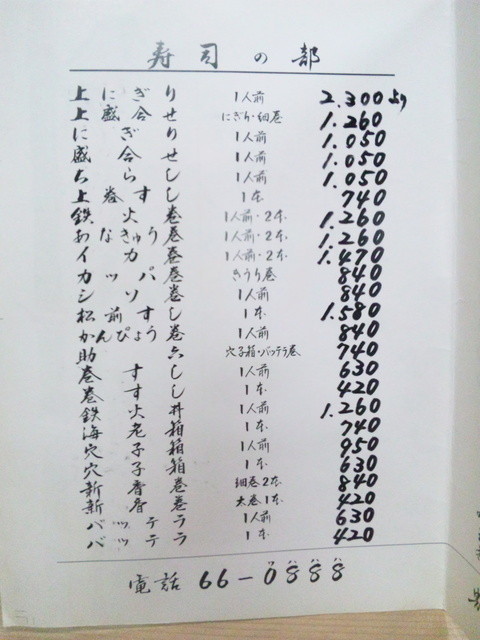 寿司の部
上にぎり 1人前 2.300より
上盛合せ にぎり・細巻 1.260
にぎり 1人前 1.050
盛合せ 1人前 1.050
ちらし 1人前 1.050
上巻すし 1本 740
鉄火巻 1人前・2本 1.260
あなきゅう巻 1人前・2本 1.260
イカ巻 1人前・2本 1.470
カッパ巻 きうり巻 840
シソ巻 1人前 840
松前すし 1本 1.580
かんぴょう巻 1人前 840
助六 穴子箱・バッテラ巻 740
巻すし 1人前 630
巻すし 1本 420
鉄火丼 1人前 1.260
海老箱 1本 740
穴子箱 1人前 950
穴子箱 1本 630
新香巻 細巻2本 840
新香巻 太巻1本 420
バッテラ 1人前 630
バッテラ 1本 420
電話 66-0888